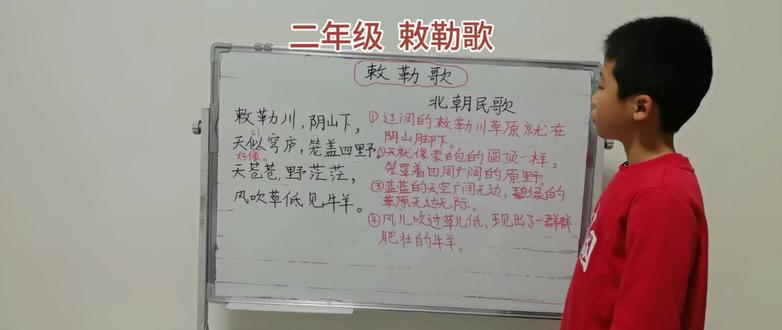 二年级 敕勒歌
敕勒歌
北朝民歌
敕勒川，阴山下，
天似穹庐，笼盖四野，
好像。
天苍苍，野茫茫，
风吹草低见牛羊。
①辽阔的敕勒川草原就在
阴山脚下。
②天就像蒙古包的圆顶一样，
笼罩着四周广阔的原野。
③蓝蓝的天空广阔无边，碧绿的
草原无边无际。
④风儿吹过草儿低，现出了一群群
肥壮的牛羊。